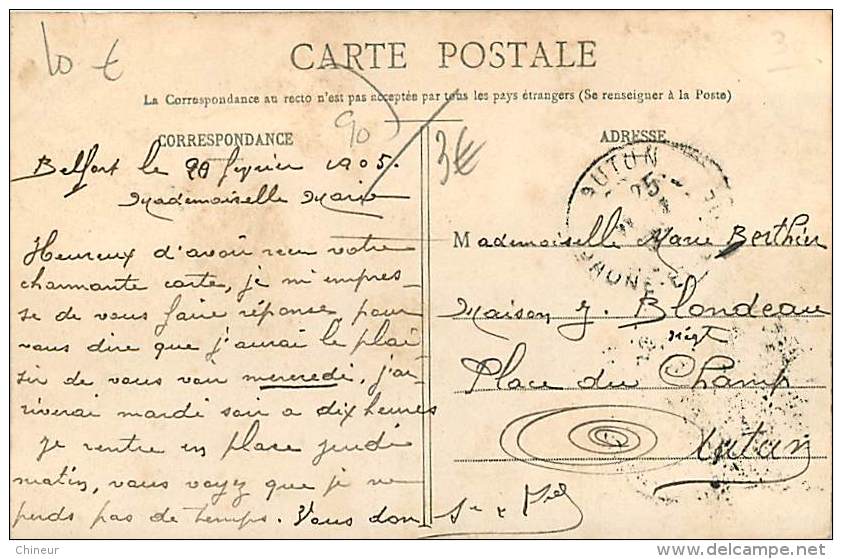 10 €
3
CARTE POSTALE
La Correspondance au recto n'est pas acceptée par tous les pays étrangers (Se renseigner à la Poste)
90
3€
CORRESPONDANCE
Belfort le 20 février 1905.
Mademoiselle Marie
Heureux d'avoir reçu votre
charmante carte, je m'empres-
se de vous faire réponse pour
vous dire que j'aurai le plai
sir de vous voir mercredi, j'ar-
riverai mardi soir a dix heures
je rentre en place jeudi
matin, vous voyez que je ne
perds pas de temps. Vous don
ADRESSE
AUTUN
25
SAONE
Mademoiselle Marie Berthier
Maison J. Blondeau
négt
Place du Champ
Autun
S. et L.
Chineur
www.delcampe.net